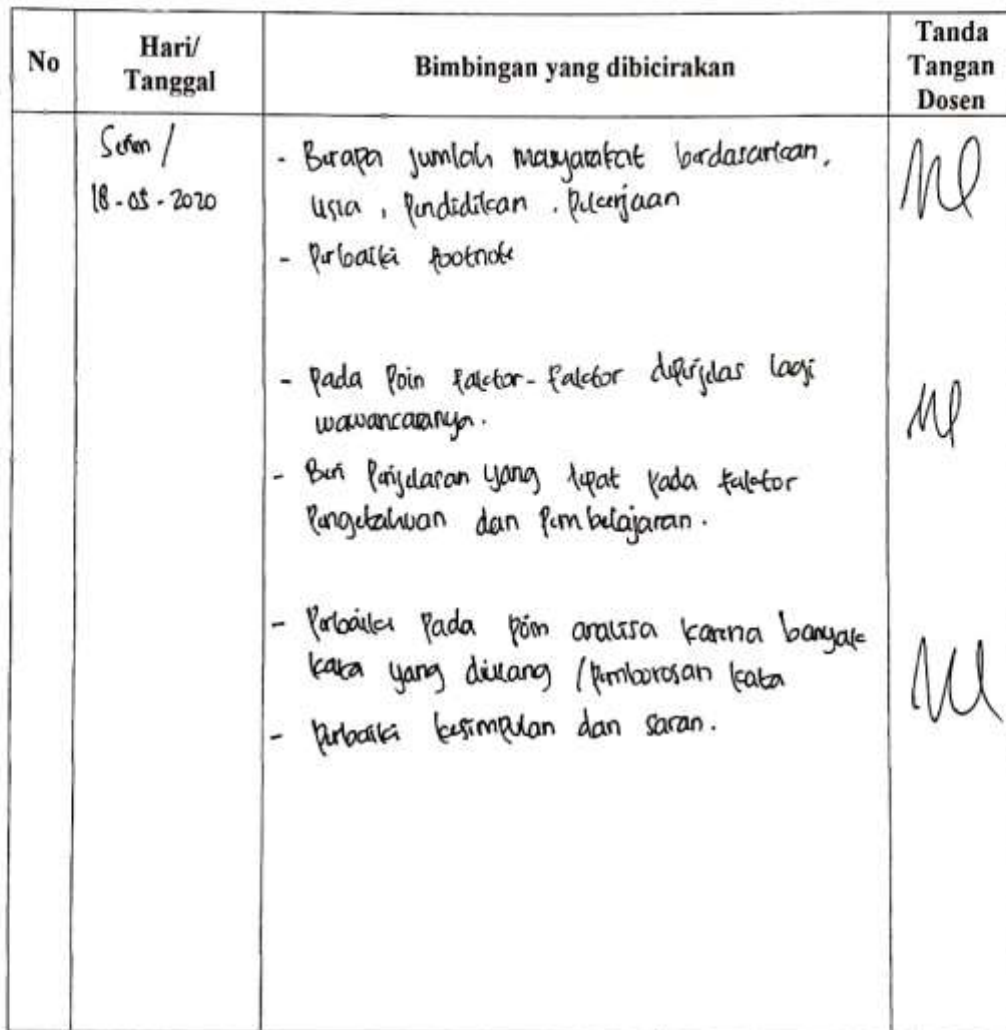 No
Hari/
Tanggal
Bimbingan yang dibicirakan
Tanda
Tangan
Dosen
Senin /
18-05-2020
- Berapa jumlah masyarakat berdasarkan,
usia, Pendidikan. Pekerjaan
- Perbaiki footnote
- Pada Poin faktor-faktor diperjelas lagi
wawancaranya.
- Beri Penjelasan yang tepat pada faktor
Pengetahuan dan Pembelajaran.
- Perbaiki Pada poin analisa karena banyak
kata yang diulang / pemborosan kata
- Perbaiki kesimpulan dan saran.